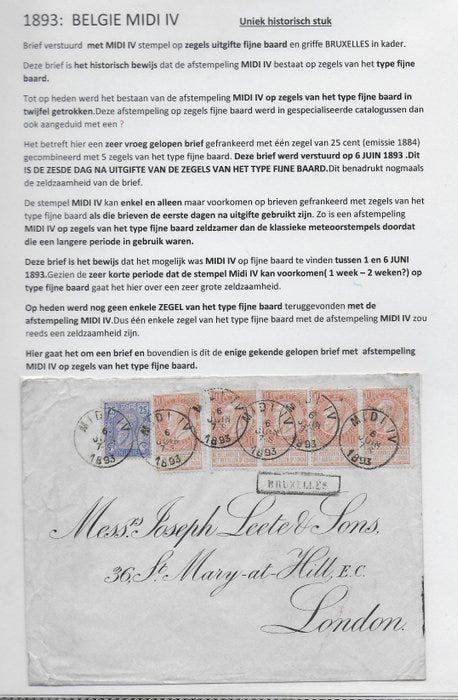 1893: BELGIE MIDI IV Uniek historisch stuk
Brief verstuurd met MIDI IV stempel op zegels uitgifte fijne baard en griffe BRUXELLES in kader.
Deze brief is het historisch bewijs dat de afstempeling MIDI IV bestaat op zegels van het type fijne
baard.
Tot op heden werd het bestaan van de afstempeling MIDI IV op zegels van het type fijne baard in
twijfel getrokken.Deze afstempeling op zegels fijne baard werd in gespecialiseerde catalogussen dan
ook aangeduid met een ?
Het betreft hier een zeer vroeg gelopen brief gefrankeerd met één zegel van 25 cent (emissie 1884)
gecombineerd met 5 zegels van het type fijne baard. Deze brief werd verstuurd op 6 JUIN 1893 .Dit
IS DE ZESDE DAG NA UITGIFTE VAN DE ZEGELS VAN HET TYPE FIJNE BAARD.Dit benadrukt nogmaals
de zeldzaamheid van de brief.
De stempel MIDI IV kan enkel en alleen maar voorkomen op brieven gefrankeerd met zegels van het
type fijne baard als die brieven de eerste dagen na uitgifte gebruikt zijn. Zo is een afstempeling
MIDI IV op zegels van het type fijne baard zeldzamer dan de klassieke meteoorstempels doordat
die een langere periode in gebruik waren.
Deze brief is het bewijs dat het mogelijk was MIDI IV op fijne baard te vinden tussen 1 en 6 JUNI
1893.Gezien de zeer korte periode dat de stempel Midi IV kan voorkomen( 1 week – 2 weken?) op
type fijne baard gaat het hier over een zeer grote zeldzaamheid.
Op heden werd nog geen enkele ZEGEL van het type fijne baard teruggevonden met de
afstempeling MIDI IV.Dus één enkele zegel van het type fijne baard met de afstempeling MIDI IV zou
reeds een zeldzaamheid zijn.
Hier gaat het om een brief en bovendien is dit de enige gekende gelopen brief met afstempeling
MIDI IV op zegels van het type fijne baard.
25
MIDI IV
6
JUIN
1893
MIDI IV
6
JUIN
1893
MIDI IV
6
JUIN
1893
MIDI IV
6
JUIN
1893
MIDI IV
6
JUIN
1893
MIDI IV
6
1893
BRUXELLES
Messrs Joseph Leete & Sons,
36, St Mary-at-Hill, E.C.
London.